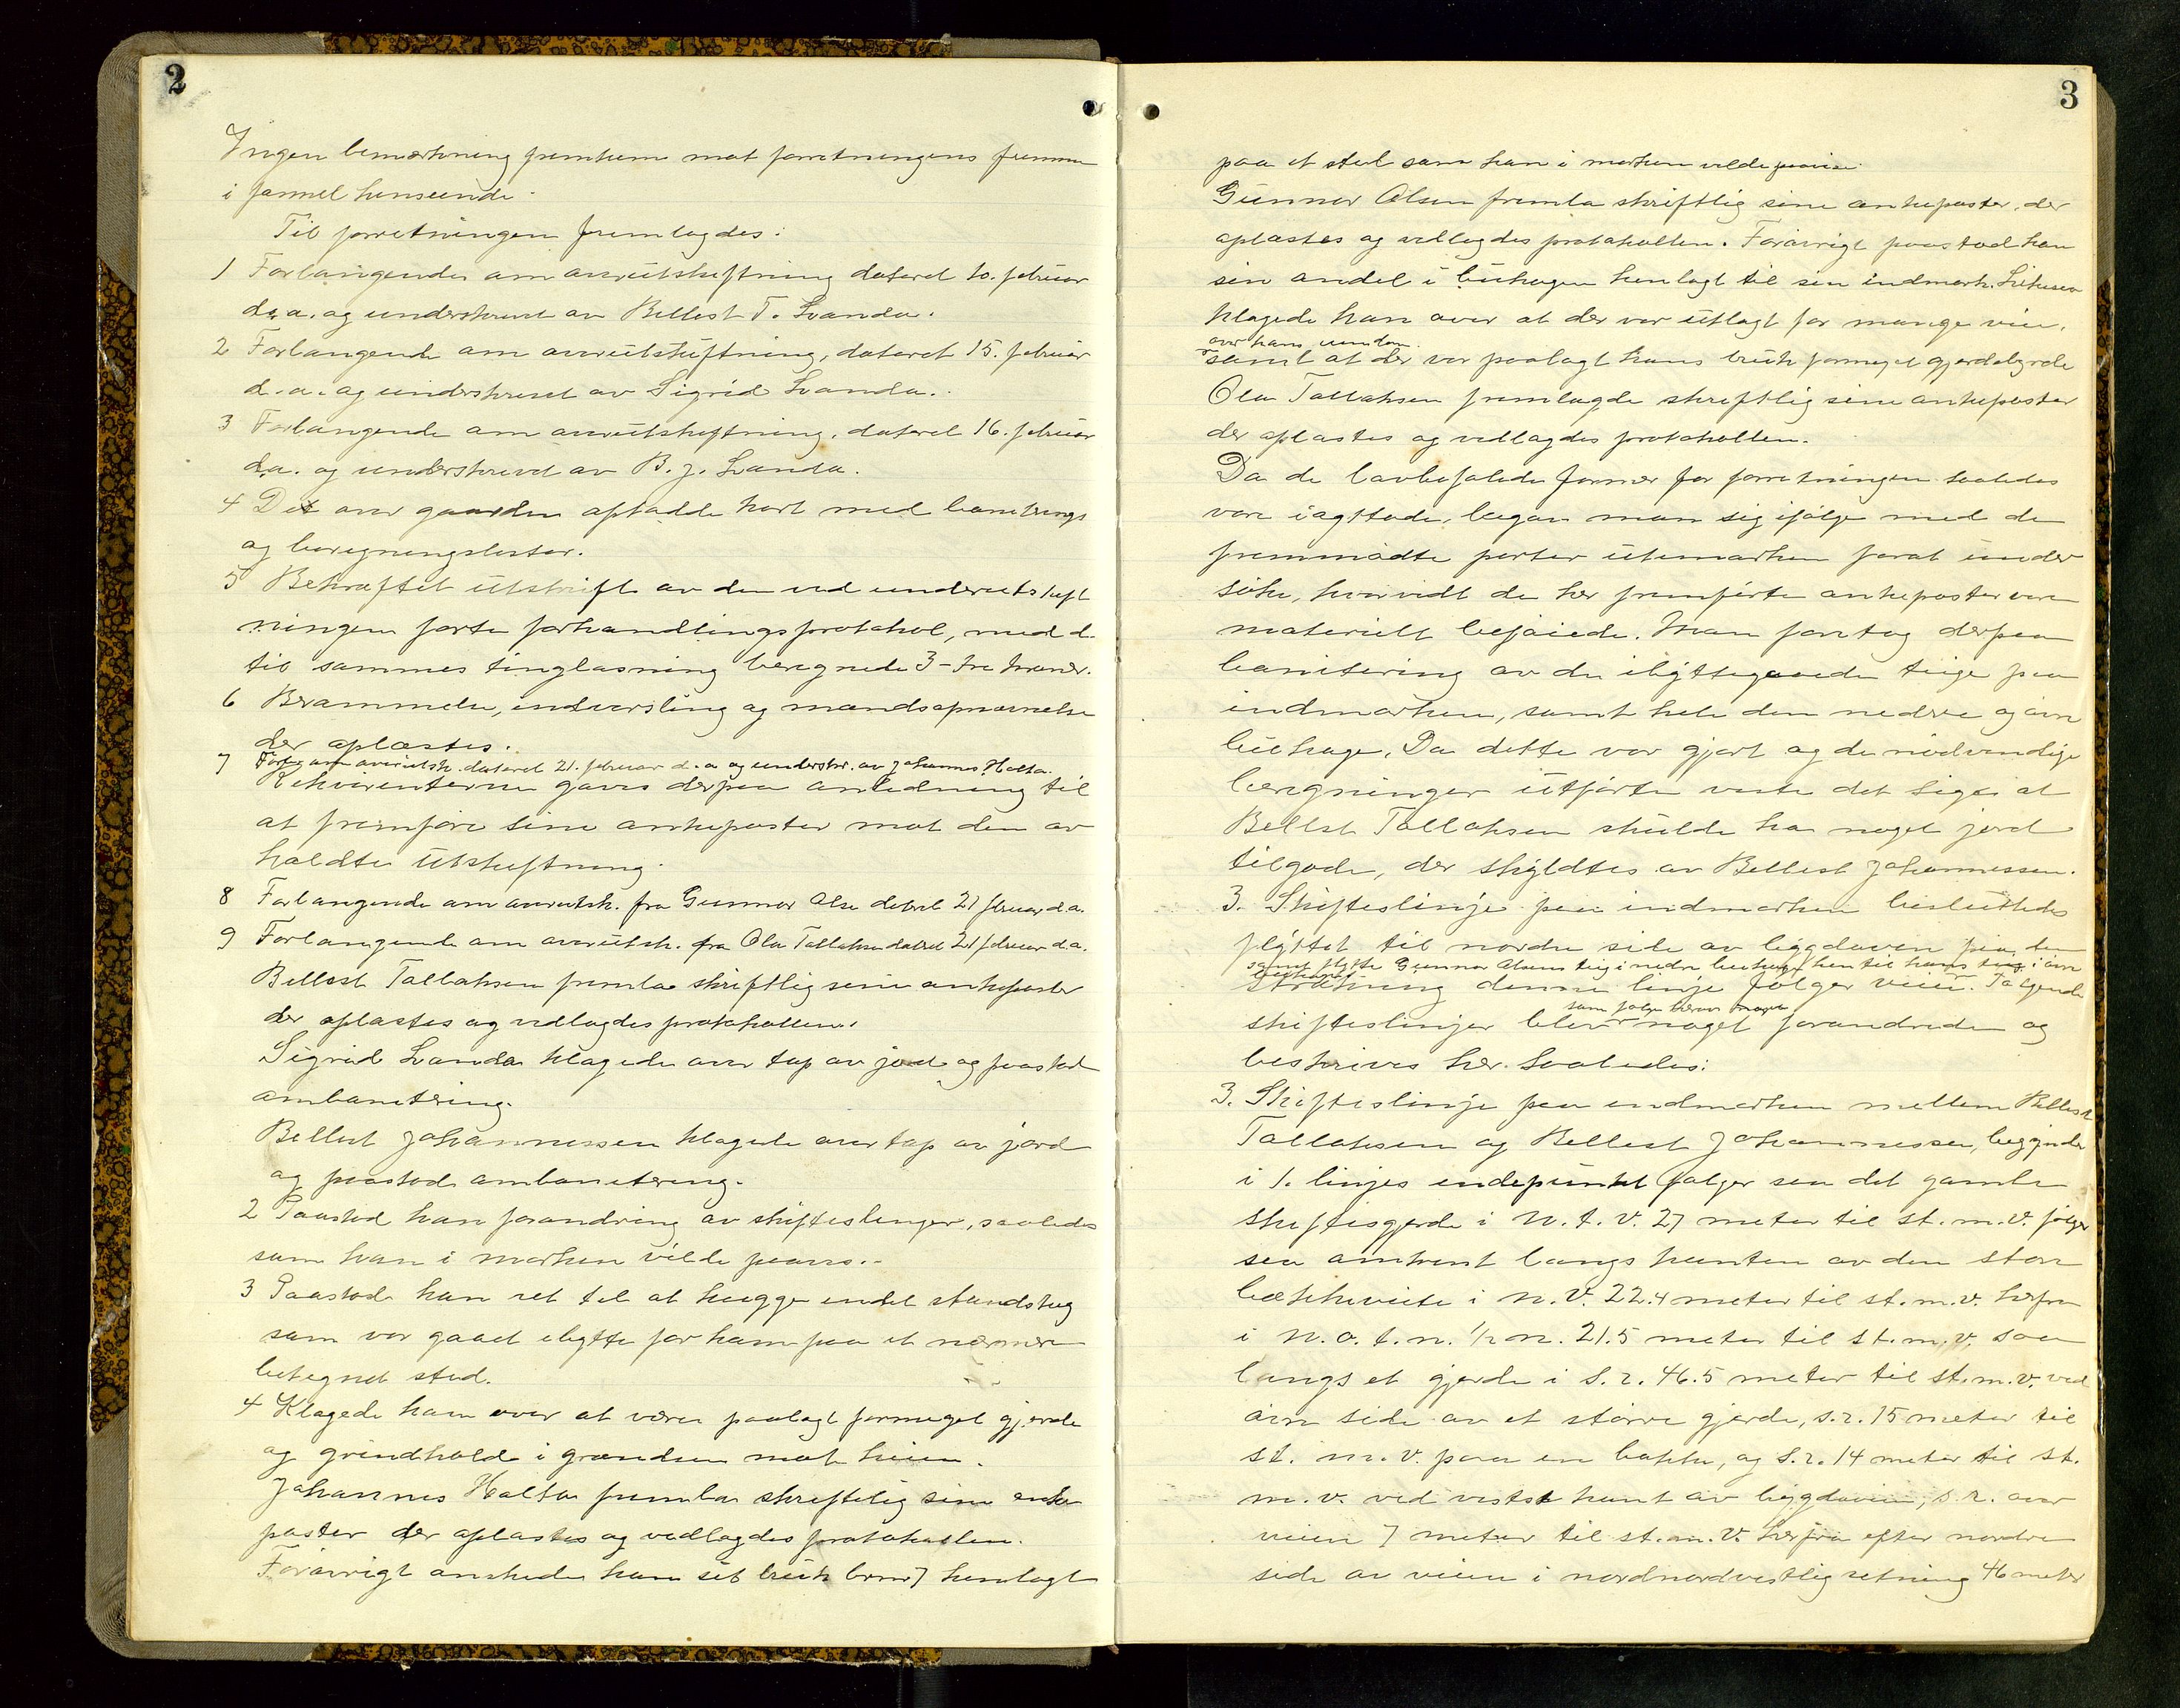 2
Ingen bemærkning fremkom mot forretningens fremme
i formel henseende.
Til forretningen fremlagdes:
1 Forlangende om overutskiftning dateret 10. februar
d.a. og underskrevet av Bellest T. Landa.
2 Forlangende om overutskiftning, dateret 15. februar
d.a. og underskrevet av Sigrid Landa.
3 Forlangende om overutskiftning, dateret 16. februar
d.a. og underskrevet av B. J. Landa.
4 Det over gaarden optadde kart med bonitrings
og beregningslister.
5 Bekræftet utskrift av den ved underutskift
ningen førte forhandlingsprotokol, med d.
til sammes tinglæsning beregnede 3 - tre kroner.
6 Berammelse, indvarsling og mandsopnævnelse
der oplæstes.
7 Forl. om overutsk. dateret 21. februar d.a og underskr. av Johannes Holta.
Rekvirenterne gaves derpaa anledning til
at fremføre sine ankeposter mot den av
holdte utskiftning.
8 Forlangende om overutsk. fra Gunnar Olse datert 21 februar d.a.
9 Forlangende om overutsk. fra Ola Tallaksen datert 21 februar d.a.
Bellest Tallaksen fremla skriftlig sine ankeposter
der oplæstes og vedlagdes protokollen.
Sigrid Landa klagede over tap av jord og paastod
ombonitering.
Bellest Johannessen klagede over tap av jord
og paastod ombonitering.
2 Paastod han forandring av skifteslinjer, saaledes
som han i marken vilde paavise.
3 Paastod han ret til at hugge endel strandskog
som var gaaet ibytte for ham paa et nærmere
betegnet sted.
4 Klagede han over at være paalagt formeget gjerde
og grindhold i grændsen mot heien.
Johannes Holta fremla skriftelig sine anke
poster der oplæstes og vedlagdes protokollen.
Forøvrigt ønskede han sit bruk brnr 7 henlagt
3
paa et sted som han i marken vilde paavise.
Gunnar Olsen fremla skriftlig sine ankeposter, der
oplæstes og vedlagdes protokollen. Forøvrigt paastod han
sin andel i buhagen henlagt til sin indmark. Likesaa
klagede han over at der var utlagt for mange veie,
over hans eiendom
samt at der var paalagt hans bruk formeget gjerdebyrde
Ola Tallaksen fremlagde skriftlig sine ankeposter
der oplæstes og vedlagdes protokollen.
Da de lovbefalede former for forretningen saaledes
vare iagttade, begav man sig ifølge med de
fremmødte parter utimarken forat under
søke, hvorvidt de her fremførte ankeposter vare
materielt beføiede. Man foretog derpaa
bonitering av de ibyttegaaede teige paa
indmarken, samt hele den nedre og øvre
buhage. Da dette var gjort og de nødvendige
beregninger utførte viste det sig at
Bellest Tallaksen skulde ha noget jord
tilgode, der skyldtes av Bellest Johannessen.
3. Skifteslinje paa indmarken besluttedes
flyttet til nordre side av bygdaveien paa den
samt flytte Gunnar Olsens teig i nedre buhagen hen til hans teig i øvre
buhagen.
strækning denne linje følger veien. Følgende
som følge herav meget
skifteslinjer blev noget forandrede og
beskrives her saaledes:
3. Skifteslinje paa indmarken mellem Bellest
Tallaksen og Bellest Johannessen, begynder
i 1. linjes endepunkt følger saa det gamle
skiftesgjerde i N. t. V. 27 meter til st. m. V. følger
saa omtrent langs kanten av den store
bækkeveite i n. V. 22.4 meter til st. m. v. herfra
i N. o. t. n. 1/2 n. 21.5 meter til st. m. v. saa
langs et gjerde i s. r. 46.5 meter til st. m. v. ved
øvre side av et større gjerde, s. r. 15 meter til
st. m. v. paa en bakke, og s. r. 14 meter til st.
m. v. ved vestst kant av bygdaveien, s. r. over
veien 7 meter til st. m. V. herfra efter nordre
side av veien i nordnordvestlig retning 46 meter